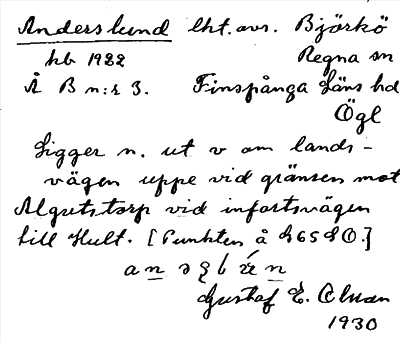 Anderslund lht. avs. Björkö
hb 1922 Regna sn
Å B n:r 3. Finspånga Läns hd
Ögl
Ligger n. ut v om lands-
vägen uppe vid gränsen mot
Algutstorp vid infartsvägen
till Hult. [Punkten å
Gustaf E.
1930